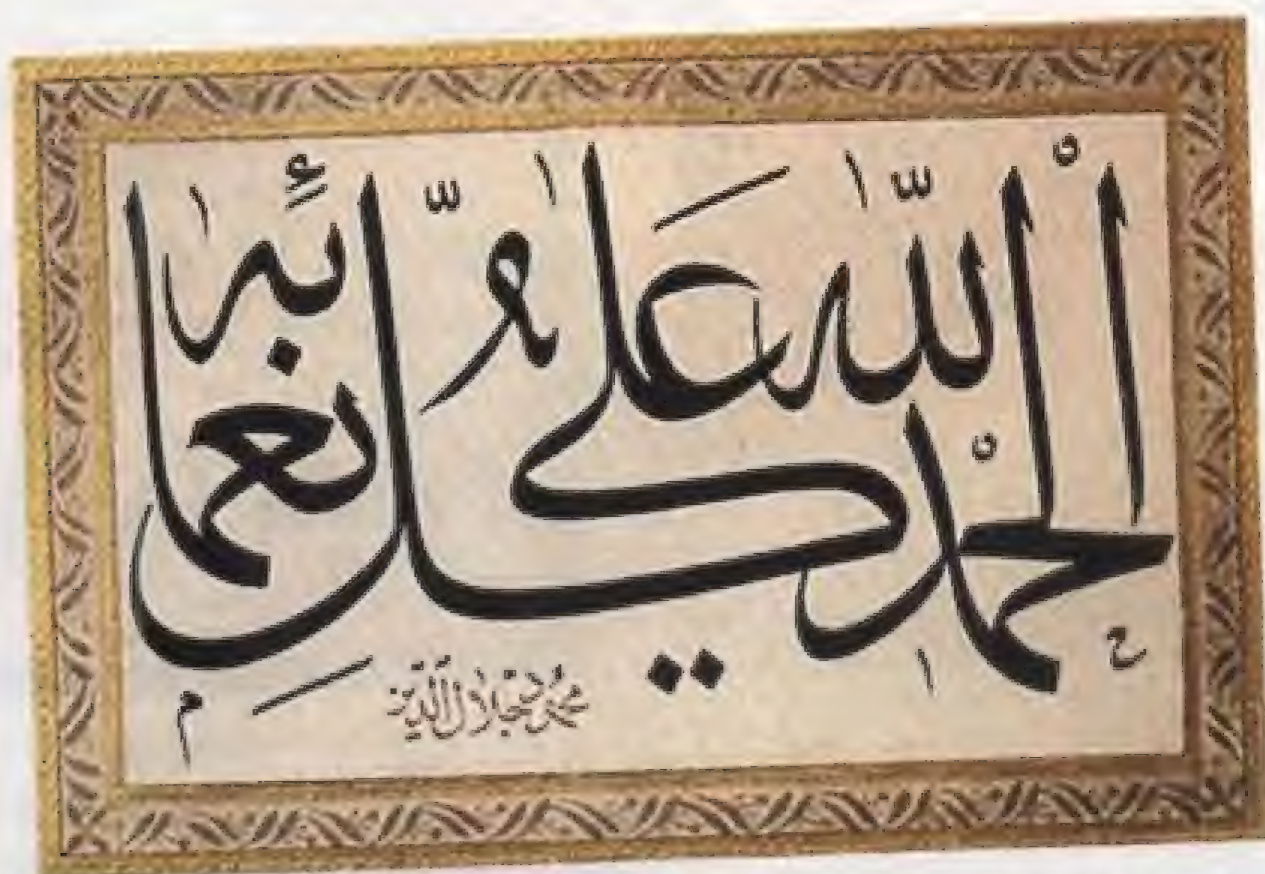 الحمد لله على كل نعمائه
محمد جلال الدين